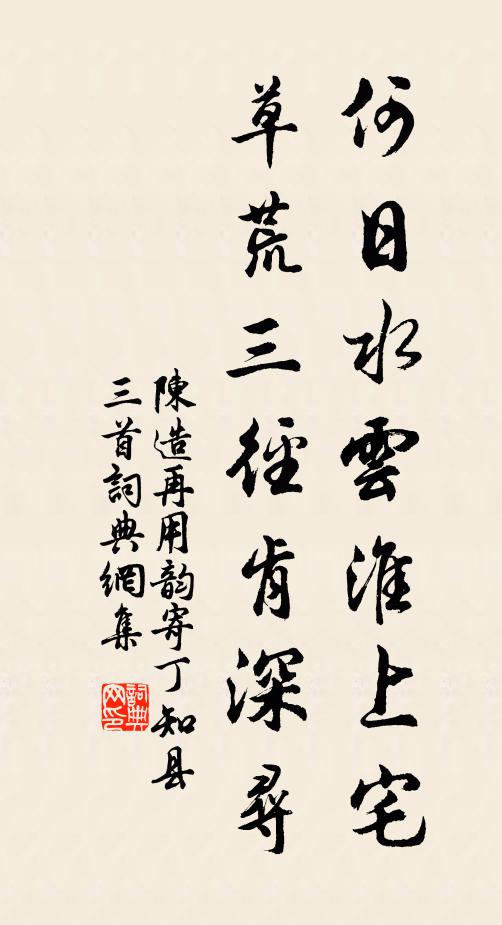 何日水雲淮上宅
草荒三徑肯深尋
陳造再用韵寄丁知县
三首詞典網集
詞典
网印